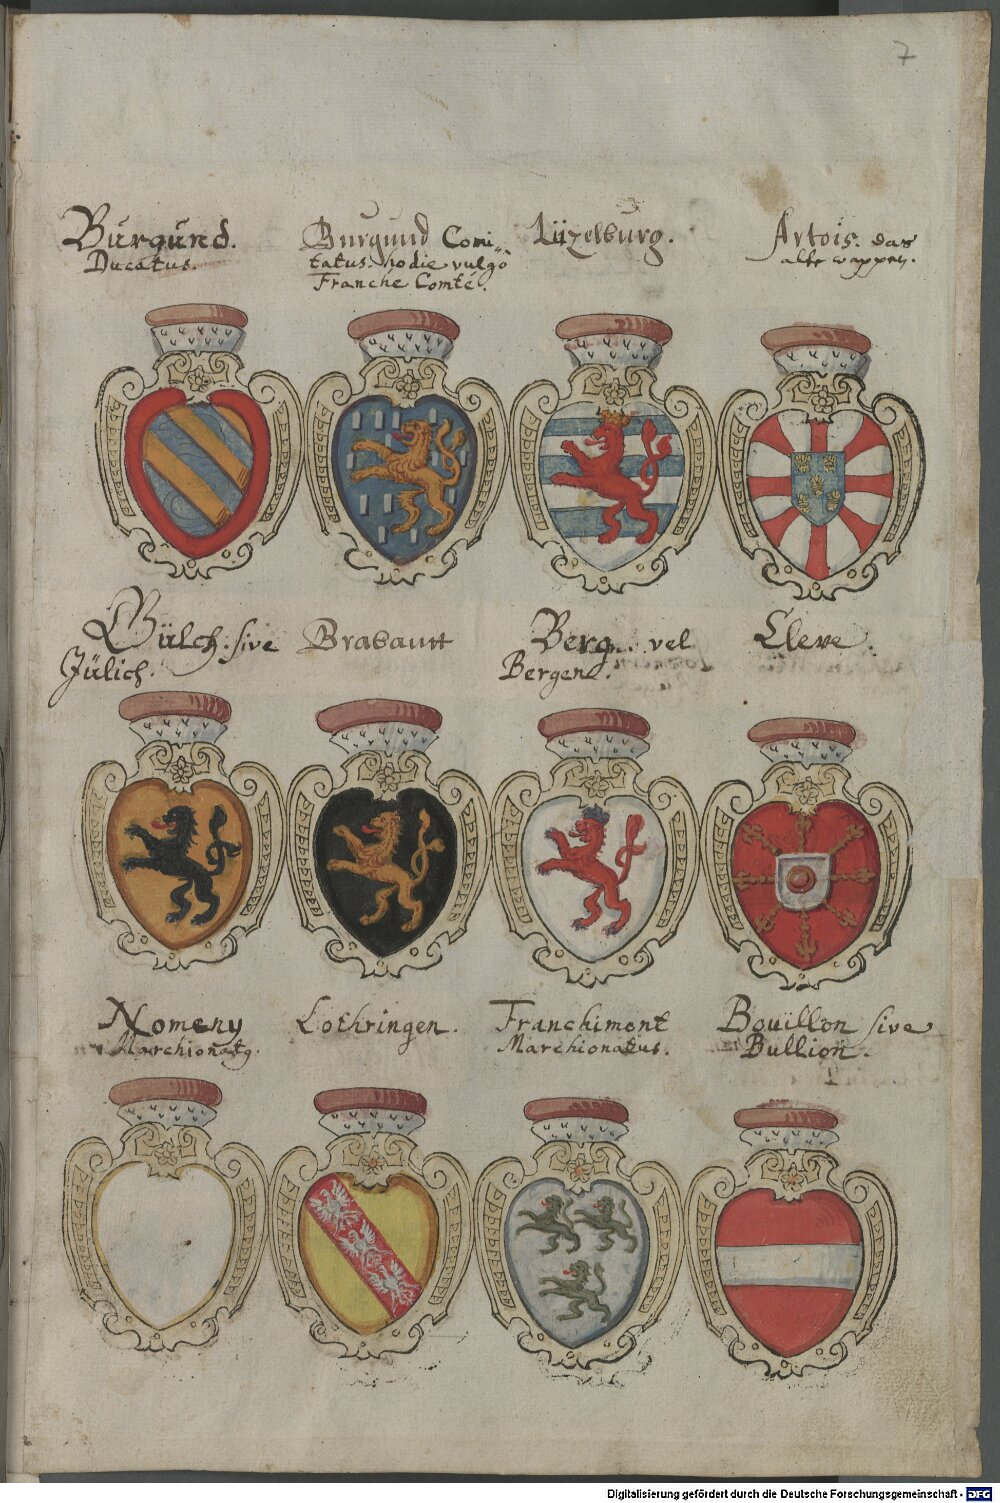 7
Burgund.
Ducatus.
Burgund Comi-
tatus. hodie vulgò
Franche Comté.
Lützelburg.
Artois. das
alte wappen.
Gülch. sive
Jülich.
Brabantt
Berg. vel
Bergen.
Cleve.
Nomeny
Marchionatg.
Lothringen.
Franchimont
Marchionatus.
Bouillon sive
Bullion.
Digitalisierung gefördert durch die Deutsche Forschungsgemeinschaft - DFG